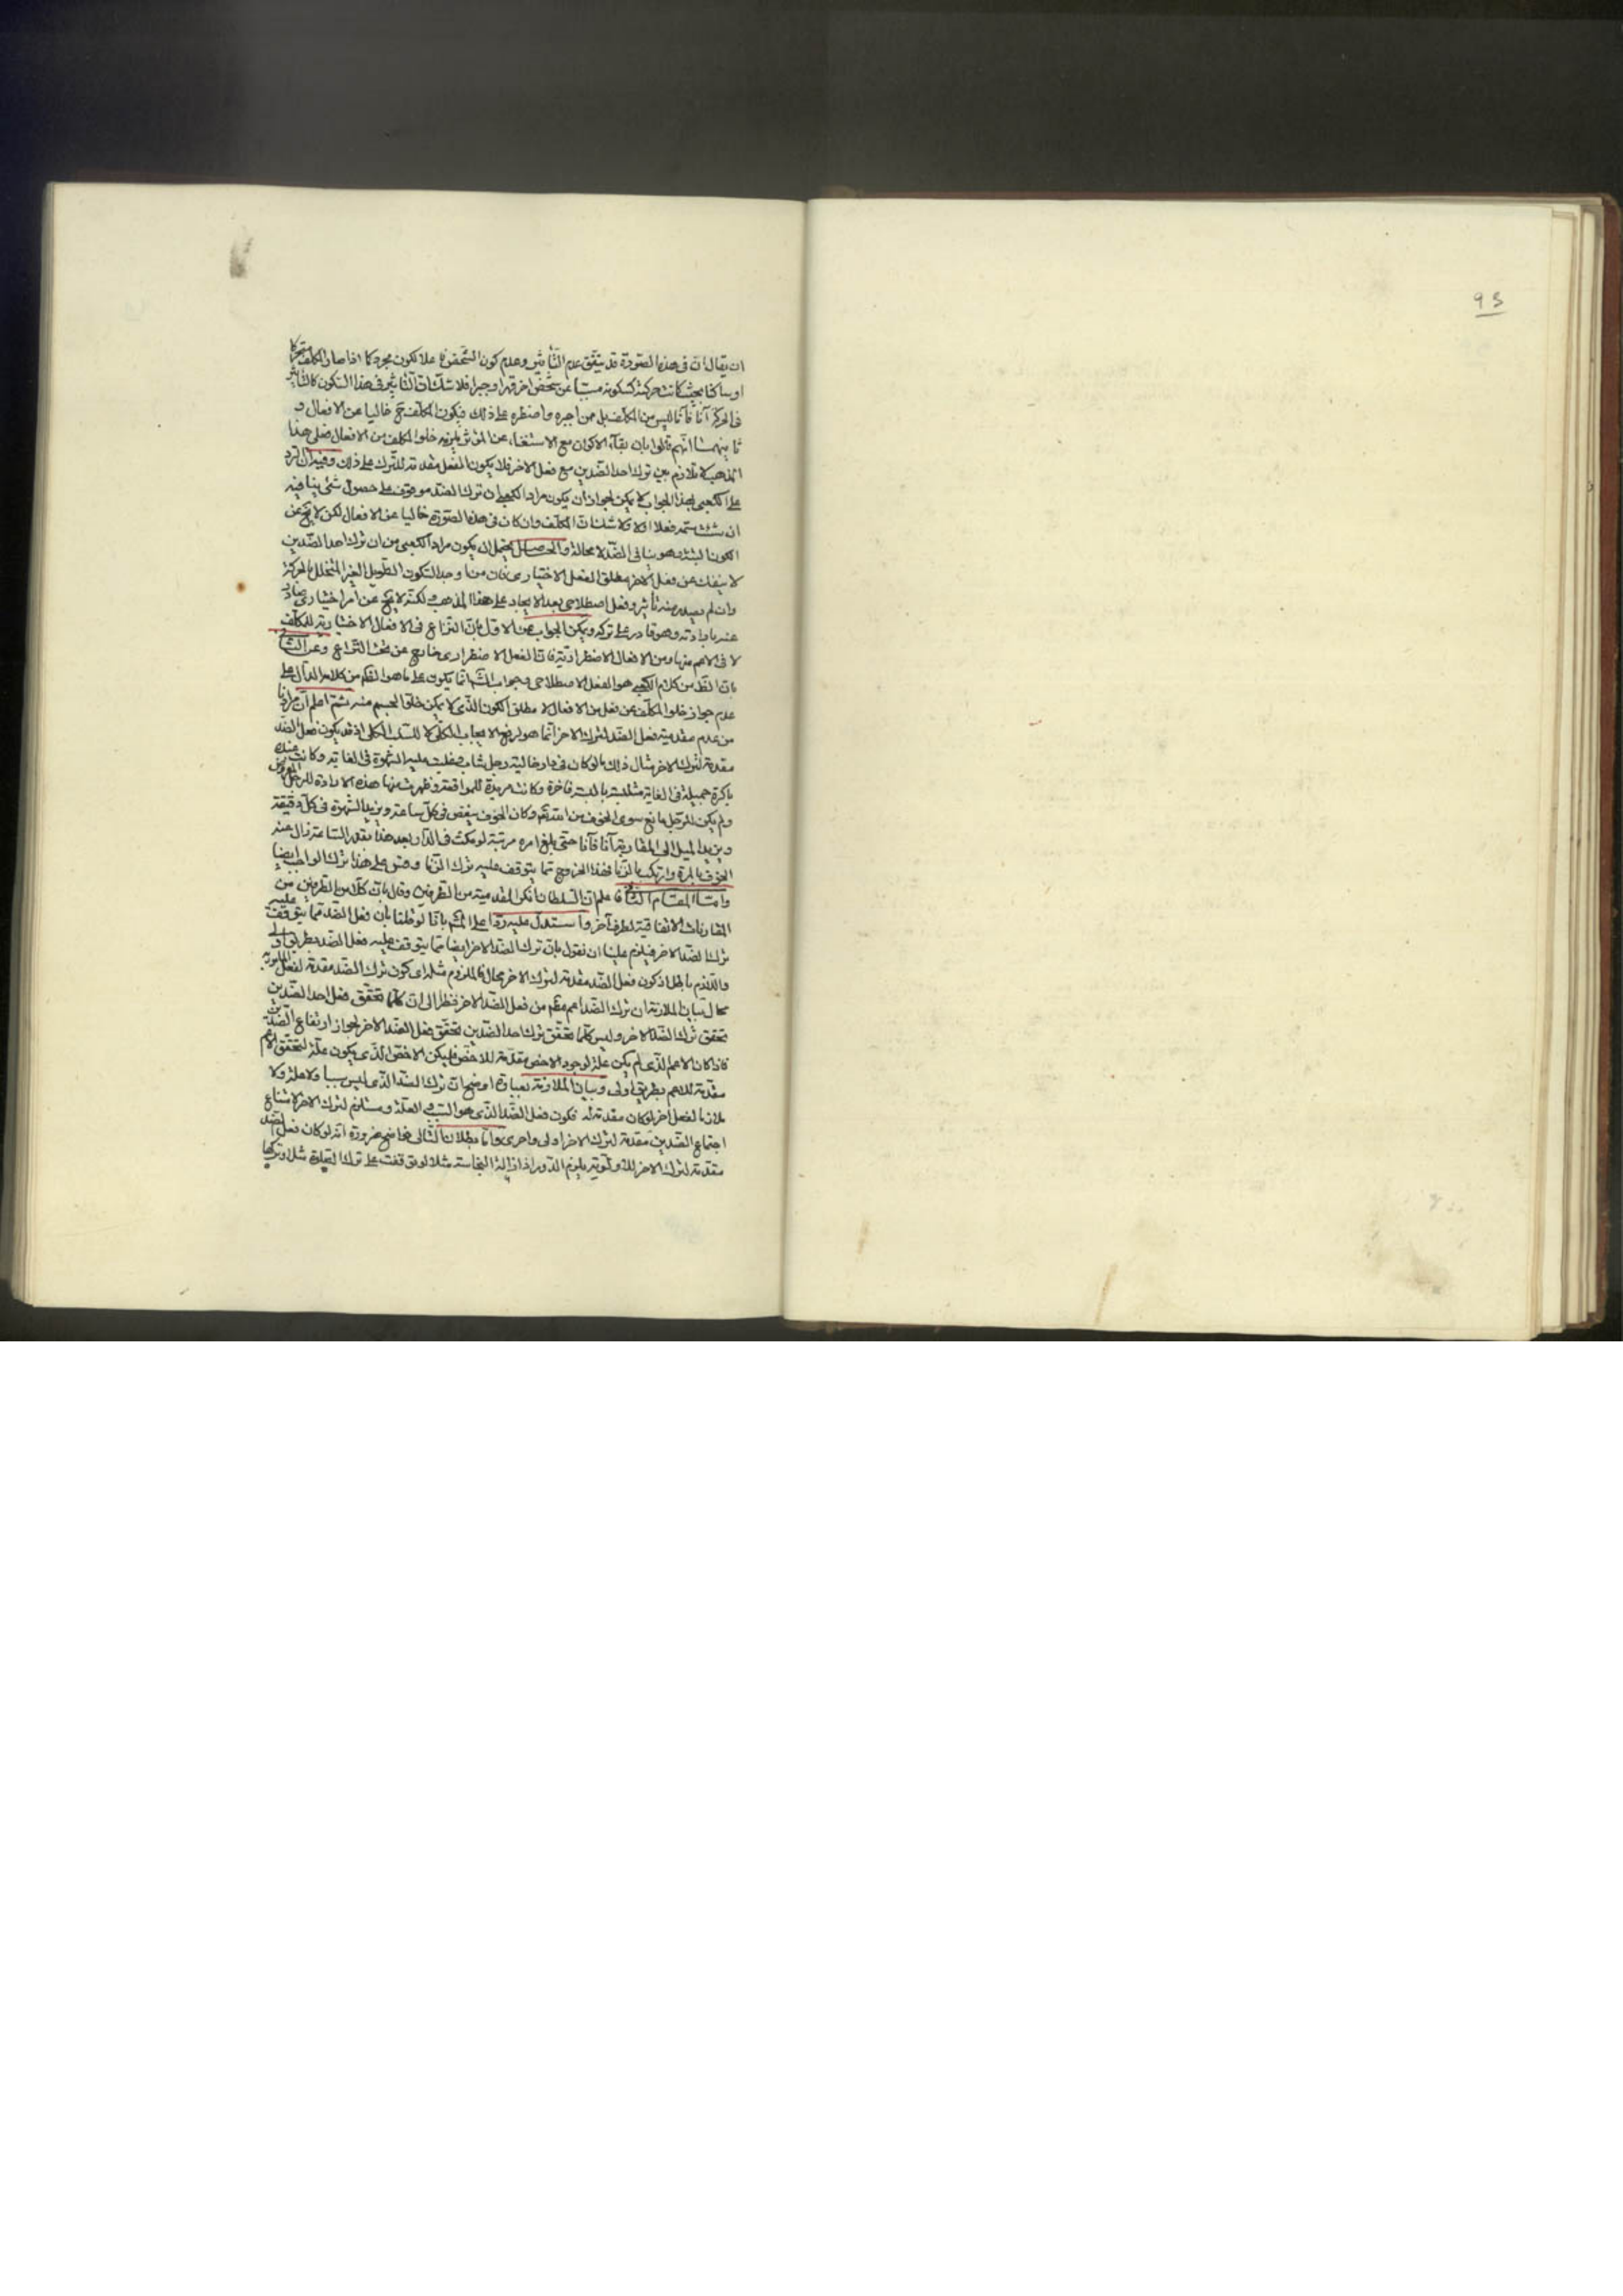 93
ان يقال ان فى هذه الصورة قد يتفق عدم التأثير وعدم كون الشخص فاعلا لكون مجردا كما اذا صار المكلف متحركا
او ساكنا بحيث كانت حركته كسكونه مسببا عن شخص اخر قهرا وجبرا فلا شك ان التأثير فى هذا السكون كالتأثير
فى الحركة آنا فآنا ليس من المكلف بل ممن اجبره واضطره على ذلك فيكون المكلف ح خاليا عن الافعال و
ثانيهما انهم قالوا بان بقاء الاكوان مع الاستغناء عن المؤثر يلزمه خلو المكلف من الافعال فعلى هذا
المذهب لا تلازم بين ترك احد الضدين مع فعل الاخر فلا يكون الفعل مقدمة للترك على ذلك وفيه ان الرد
على الكعبى بهذا الجواب لا يمكن لجواز ان يكون مراد الكعبى ان ترك الضد موقوف على حصول شئ ينافيه
ان شئت سمه فعلا ام لا ولا شك ان المكلف وان كان فى هذه الصورة خاليا عن الافعال لكن لا يخ عن
الكون البتة وهو ينافى الضد لا محالة والحاصل يحتمل ان يكون مراد الكعبى من ان ترك احد الضدين
لا ينفك عن فعل الاخر مطلق الفعل الاختيارى فان من اوجد السكون الطويل الغير المتخلل بالحركة
وان لم يصدر منه تأثير وفعل اصطلاحى بعد الايجاد على هذا المذهب ولكنه لا يخ عن امر اختيارى صادر
عنه بارادته وهو قادر على تركه ويمكن الجواب عن الاول بان النزاع فى الافعال الاختيارية للمكلف
لا فى الاعم منها ومن الافعال الاضطرارية فان الفعل الاضطرارى خارج عن تحت النزاع وعن الثانى
بان الظ من كلام الكعبى هو الفعل الاصطلاحى وجواب انما يكون على ما هو الظ من كلامه الدال على
عدم جواز خلو المكلف عن فعل من الافعال لا مطلق الكون الذى لا يمكن خلو الجسم منه ثم اعلم ان مرادنا
من عدم مقدمية فعل الضد لترك الاخر انما هو لرفع الايجاب الكلى لا للسلب الكلى اذ قد يكون فعل الضد
مقدمة لترك الاخر مثال ذلك ما لو كان فى دار خالية رجل شاب يغلب عليه الشهوة فى الغاية وكانت عنده
باكرة جميلة فى الغاية متلبسة بالبسة فاخرة وكانت مريدة للمواقعة وظهرت منها هذه الارادة للرجل المعروض
ولم يكن للرجل مانع سوى الخوف من الله تعالى وكان الخوف ينقص فى كل ساعة ويزيد الشهوة فى كل دقيقة
ويزيد الميل الى المقاربة آنا فآنا حتى بلغ امره مرتبة لو مكث فى الدار بعد هذا بقدر الساعة زال عنه
الخوف بالمرة وارتكب بالزنا فهذا الخروج مما يتوقف عليه ترك الزنا وقس على هذا ترك الواجب ايضا
واما المقام الثانى فاعلم ان السلطان انكر المقدمية من الطرفين وقال بان كلا من الطرفين من
المقارنات الاتفاقية لطرف آخر واستدل عليه ردا على بانا لو قلنا بان فعل الضد مما يتوقف عليه
ترك الضد الاخر فيلزم علينا ان نقول بان ترك الضد الاخر ايضا مما يتوقف عليه فعل الضد بطريق اولى
واللازم باطل اذ كون فعل الضد مقدمة لترك الاخر محال فالملزوم مثله اى كون ترك الضد مقدمة لفعل
محال بيان الملازمة ان ترك الضد اعم مطلقا من فعل الضد الاخر نظرا الى ان كلما تحقق فعل احد الضدين
تحقق ترك الضد الاخر وليس كلما تحقق ترك احد الضدين تحقق فعل الضد الاخر لجواز ارتفاع الضدين
فاذا كان الاعم الذى لم يكن علة لوجود الاخص مقدمة للاخص فليكن الاخص الذى يكون علة لتحقق الاعم
مقدمة للاعم بطريق اولى وبيان الملازمة بعبارة اوضح ان ترك الضد الذى ليس سببا ولا علة ولا
ملازما لفعل اخر لو كان مقدمة له فكون فعل الضد الذى هو السبب والعلة ومستلزم لترك الاخر لامتناع
اجتماع الضدين مقدمة لترك الاخر اولى واحرى واما بطلان التالى فواضح ضرورة انه لو كان فعل الضد
مقدمة لترك الاخر للزم الدور اذ ازالة النجاسة مثلا لو توقفت على ترك الصلوة مثلا وتركها